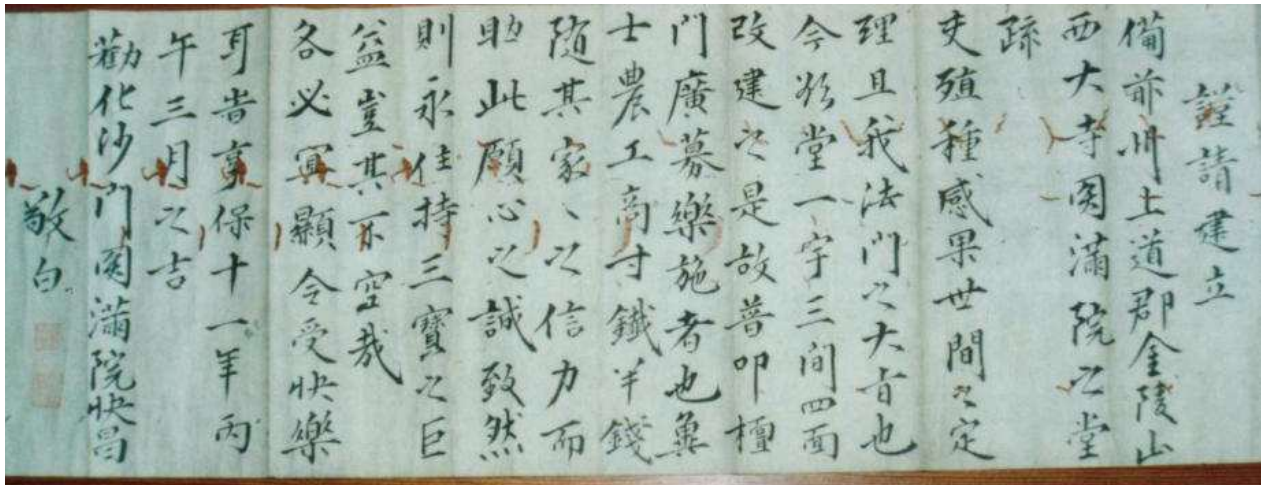 謹請建立
備前州上道郡金陵山
西大寺圓滿院之堂
疏
夫殖種感果世間之定
理且我法門之大旨也
今欲堂一宇三間四面
改建之是故普叩檀
門廣募樂施者也冀
士農工商寸鐵半錢
随其家々之信力而
助此願心之誠致然
則永住持三寶之巨
益豈其不空哉
各必冥顯令受快樂
耳旹享保十一年丙
午三月之吉
勸化沙門圓滿院快昌
敬白